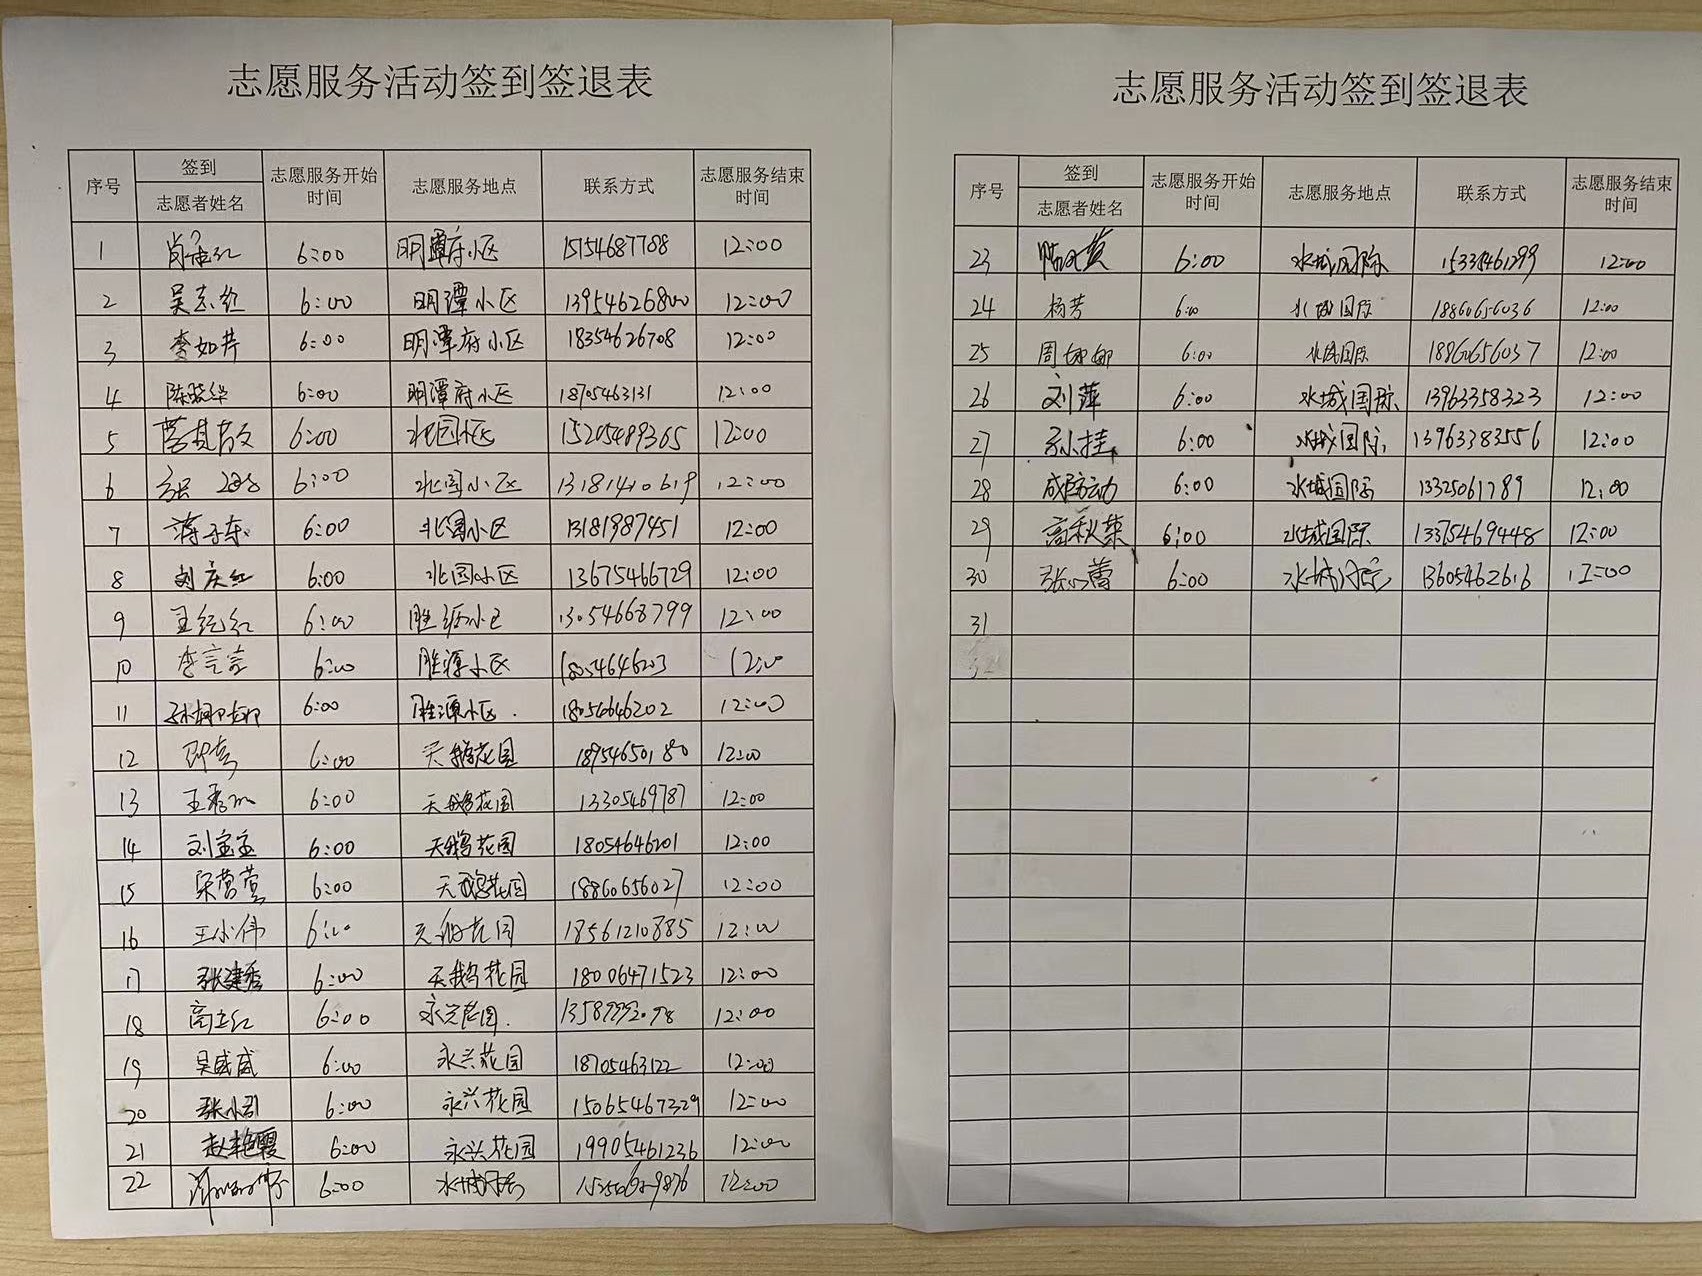 志愿服务活动签到签退表
序号 签到 志愿服务开始时间 志愿服务地点 联系方式 志愿服务结束时间
志愿者姓名
1 6:00 明潭府小区 15154687788 12:00
2 吴志红 6:00 明潭小区 13954626800 12:00
3 李如芹 6:00 明潭府小区 18354626708 12:00
4 陈晓华 6:00 明潭府小区 18705463131 12:00
5 6:00 北园小区 15205489365 12:00
6 6:00 北园小区 13181410619 12:00
7 6:00 北园小区 13181987451 12:00
8 刘庆红 6:00 北园小区 13675466729 12:00
9 6:00 小区 13054668799 12:00
10 6:00 胜源小区 18054646203 12:00
11 6:00 胜源小区 18054646202 12:00
12 6:00 天鹅花园 18954650180 12:00
13 6:00 天鹅花园 13305469787 12:00
14 6:00 天鹅花园 18054646201 12:00
15 6:00 天鹅花园 18860656027 12:00
16 王小伟 6:00 花园 18561210885 12:00
17 张建秀 6:00 天鹅花园 18006471523 12:00
18 高立红 6:00 永兴花园 12:00
19 吴盛盛 6:00 永兴花园 18705463122 12:00
20 张小利 6:00 永兴花园 15065467329 12:00
21 赵艳霞 6:00 永兴花园 19905461236 12:00
22 6:00 水城国际 12:00
志愿服务活动签到签退表
序号 签到 志愿服务开始时间 志愿服务地点 联系方式 志愿服务结束时间
志愿者姓名
23 6:00 水城国际 12:00
24 杨芳 6:00 水城国际 18860656036 12:00
25 周娜娜 6:00 水城国际 18860656037 12:00
26 刘萍 6:00 水城国际 13963358323 12:00
27 孙桂 6:00 水城国际 13963383556 12:00
28 6:00 水城国际 13325061789 12:00
29 高秋菊 6:00 水城国际 13375469448 12:00
30 张小蕾 6:00 水城国际 13605462616 12:00
31
32